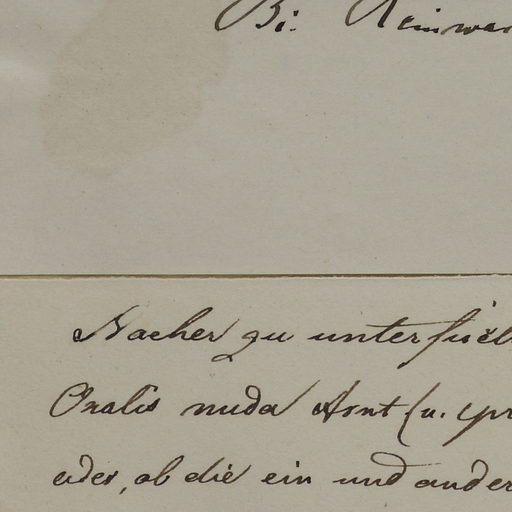 Bi. Reinwar
Naeher zu untersuch
Oxalis nuda Arnt (u. spr
oder, ob die ein und ander